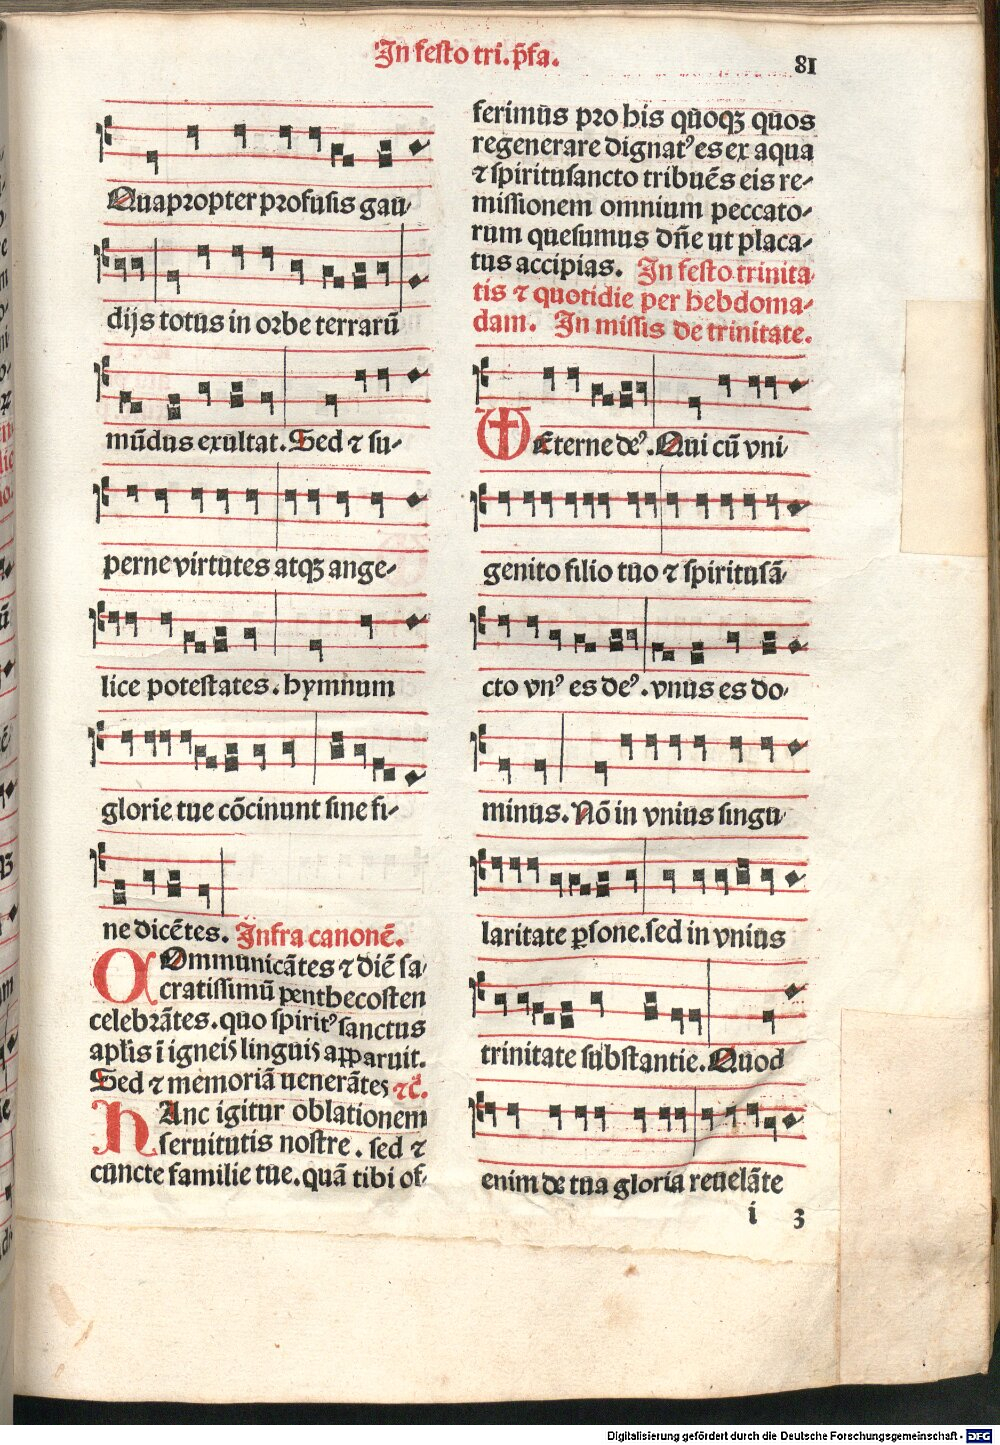 In festo tri. p̄fa.
81
Quapropter profusis gau-
dijs totus in orbe terrarū
mūdus exultat. Sed ⁊ su-
perne virtutes atqꝫ ange-
lice potestates. hymnum
glorie tue cōcinunt sine fi-
ne dicētes. Infra canonē.
COmmunicātes ⁊ diē sa-
cratissimū penthecosten
celebrātes. quo spiritꝰ sanctus
apl̄is ī igneis linguis apparuit.
Sed ⁊ memoriā uenerātes ⁊c̄.
HAnc igitur oblationem
seruitutis nostre. sed ⁊
cuncte familie tue. quā tibi of-
ferimus pro his quoqꝫ quos
regenerare dignatꝰ es ex aqua
⁊ spiritusancto tribuēs eis re-
missionem omnium peccato-
rum quesumus dn̄e ut placa-
tus accipias. In festo trinita
tis ⁊ quotidie per hebdoma-
dam. In missis de trinitate.
VEterne deꝰ. Qui cū vni-
genito filio tuo ⁊ spiritusā-
cto vnꝰ es deꝰ. vnus es do-
minus. Nō in vnius singu-
laritate ꝑsone. sed in vnius
trinitate substantie. Quod
enim de tua gloria reuelāte
i 3
Digitalisierung gefördert durch die Deutsche Forschungsgemeinschaft - DFG